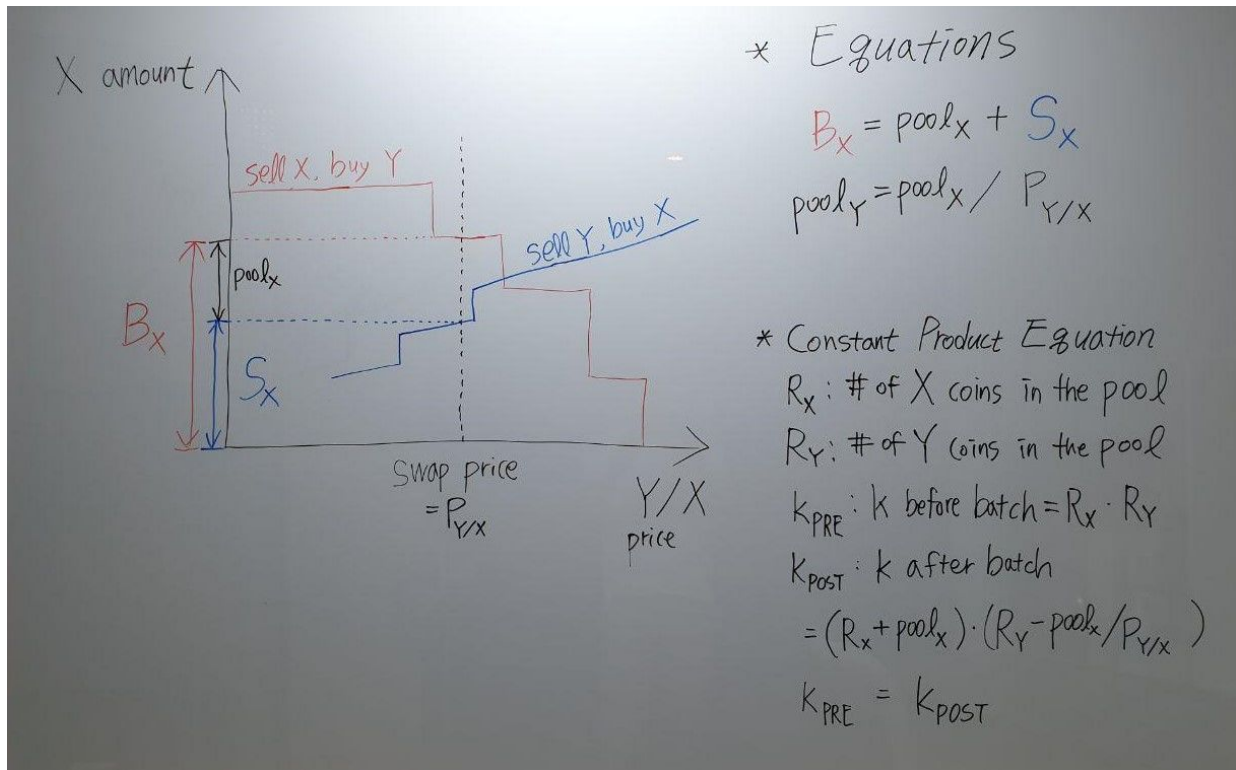 X amount
sell X, buy Y
sell Y, buy X
pool_X
B_X
S_X
swap price
= P_Y/X
Y/X
price
* Equations
B_X = pool_X + S_X
pool_Y = pool_X / P_Y/X
* Constant Product Equation
R_X : # of X coins in the pool
R_Y : # of Y coins in the pool
k_PRE : k before batch = R_X · R_Y
k_POST : k after batch
= (R_X + pool_X) · (R_Y - pool_X / P_Y/X)
k_PRE = k_POST